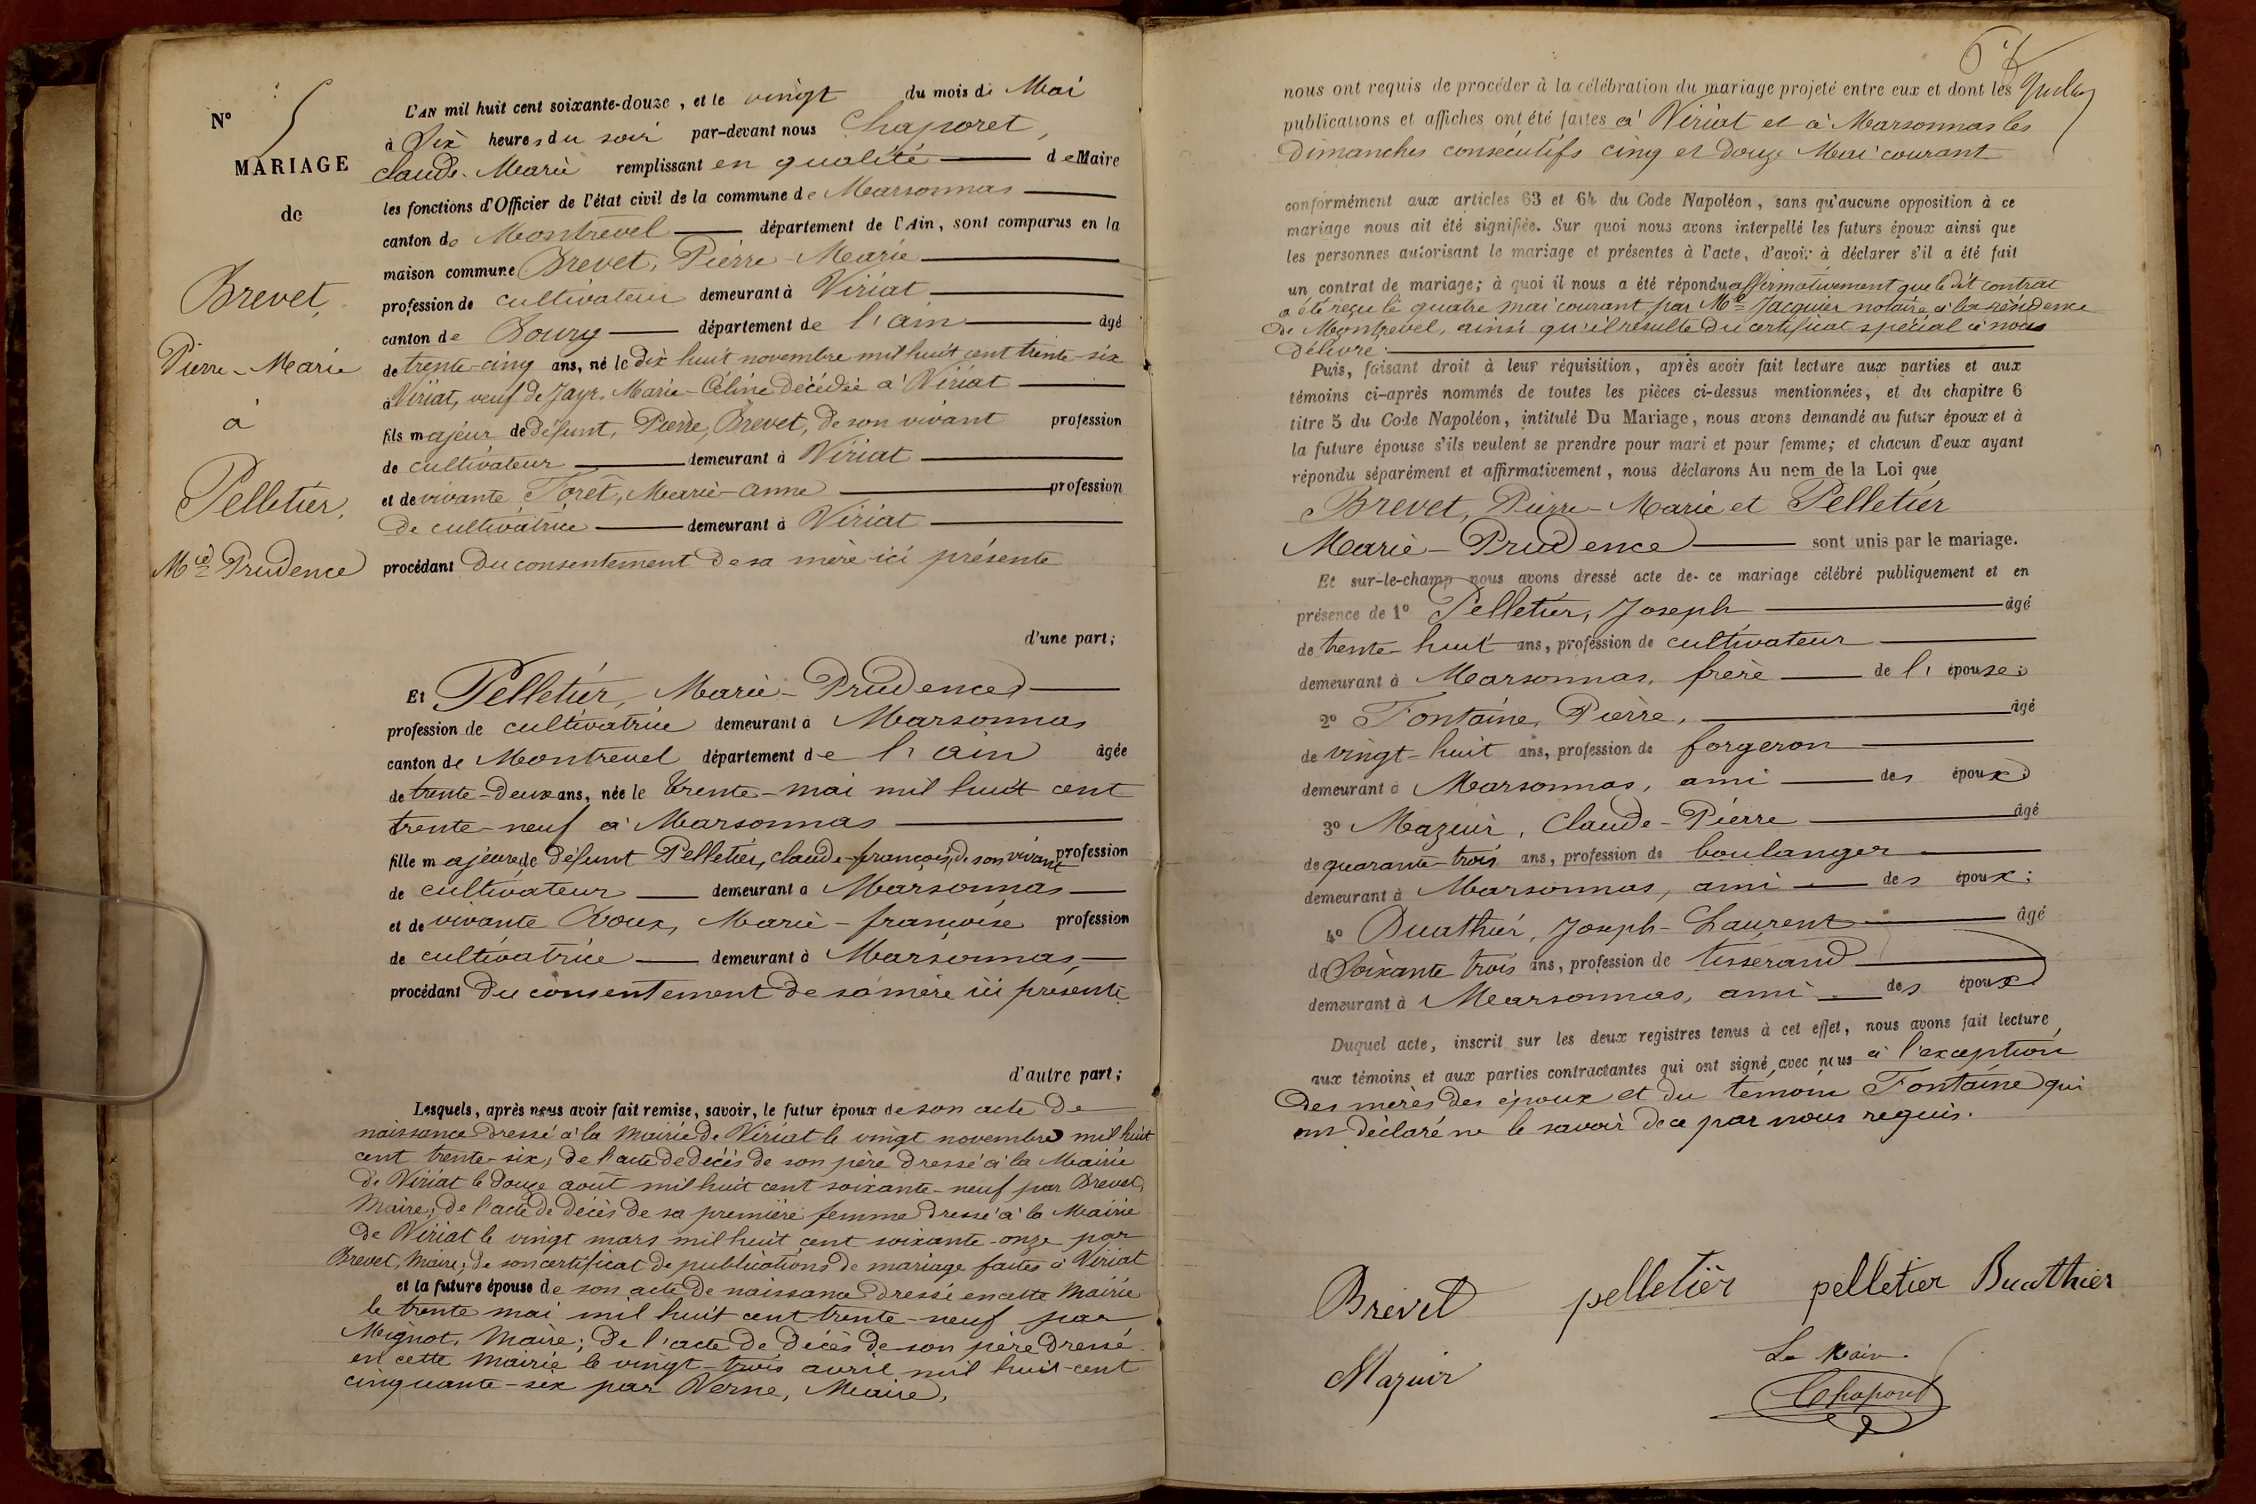 N° 5
MARIAGE
de
Brevet,
Pierre-Marie
à
Pelletier,
Mie Prudence
L'AN mil huit cent soixante-douze, et le vingt du mois de Mai
à Six heures du soir par-devant nous Chaporet,
Claude-Marie remplissant en qualité de Maire
les fonctions d'Officier de l'état civil de la commune de Marsonnas
canton de Montrevel département de l'Ain, sont comparus en la
maison commune Brevet, Pierre-Marie
profession de cultivateur demeurant à Viriat
canton de Bourg département de l'ain âgé
de trente-cinq ans, né le dix huit novembre mil huit cent trente-six
à Viriat, veuf de Jayr, Marie-Céline décédée à Viriat
fils majeur de défunt, Pierre, Brevet, de son vivant profession
de cultivateur demeurant à Viriat
et de vivante Foret, Marie-anne profession
de cultivatrice demeurant à Viriat
procédant du consentement de sa mère ici présente
d'une part;
Et Pelletier, Marie-Prudence
profession de cultivatrice demeurant à Marsonnas
canton de Montrevel département de l'ain âgée
de trente-deux ans, née le trente-mai mil huit cent
trente-neuf à Marsonnas
fille majeure de défunt Pelletier, Claude-françois, de son vivant profession
de cultivateur demeurant à Marsonnas
et de vivante Roux, Marie-françoise profession
de cultivatrice demeurant à Marsonnas
procédant du consentement de sa mère ici présente
d'autre part;
Lesquels, après nous avoir fait remise, savoir, le futur époux de son acte de
naissance dressé à la Mairie de Viriat le vingt novembre mil huit
cent trente-six, de l'acte de décès de son père dressé à la Mairie
de Viriat le douze août mil huit cent soixante-neuf par Brevet,
Maire; de l'acte de décès de sa première femme dressé à la Mairie
de Viriat le vingt mars mil huit cent soixante-onze par
Brevet, Maire; de son certificat de publications de mariage faites à Viriat
et la future épouse de son acte de naissance dressé en cette Mairie
le trente mai mil huit cent trente-neuf par
Mignot, Maire; de l'acte de décès de son père dressé
en cette Mairie le vingt-trois avril mil huit-cent
cinquante-six par Verne, Maire,
nous ont requis de procéder à la célébration du mariage projeté entre eux et dont les
publications et affiches ont été faites à Viriat et à Marsonnas les
Dimanches consécutifs cinq et douze Mai courant
conformément aux articles 63 et 64 du Code Napoléon, sans qu'aucune opposition à ce
mariage nous ait été signifiée. Sur quoi nous avons interpellé les futurs époux ainsi que
les personnes autorisant le mariage et présentes à l'acte, d'avoir à déclarer s'il a été fait
un contrat de mariage; à quoi il nous a été répondu affirmativement que le dit contrat
a été reçu le quatre mai courant par Me Jacquier notaire à la résidence
de Montrevel, ainsi qu'il résulte du certificat spécial à nous
délivré.
Puis, faisant droit à leur réquisition, après avoir fait lecture aux parties et aux
témoins ci-après nommés de toutes les pièces ci-dessus mentionnées, et du chapitre 6
titre 5 du Code Napoléon, intitulé Du Mariage, nous avons demandé au futur époux et à
la future épouse s'ils veulent se prendre pour mari et pour femme; et chacun d'eux ayant
répondu séparément et affirmativement, nous déclarons Au nom de la Loi que
Brevet, Pierre-Marie et Pelletier
Marie-Prudence sont unis par le mariage.
Et sur-le-champ nous avons dressé acte de ce mariage célébré publiquement et en
présence de 1° Pelletier, Joseph âgé
de trente-huit ans, profession de cultivateur
demeurant à Marsonnas, frère de l'épouse;
2° Fontaine, Pierre, âgé
de vingt-huit ans, profession de forgeron
demeurant à Marsonnas, ami des époux
3° Mazuir, Claude-Pierre âgé
de quarante-trois ans, profession de boulanger
demeurant à Marsonnas, ami des époux;
4° Buathier, Joseph-Laurent âgé
de Soixante trois ans, profession de tisserand
demeurant à Marsonnas, ami des époux
Duquel acte, inscrit sur les deux registres tenus à cet effet, nous avons fait lecture
aux témoins et aux parties contractantes qui ont signé avec nous à l'exception
des mères des époux et du témoin Fontaine qui
ont déclaré ne le savoir de ce par nous requis.
Brevet pelletier pelletier Buatthier
Mazuir
Le Maire
Chaporet